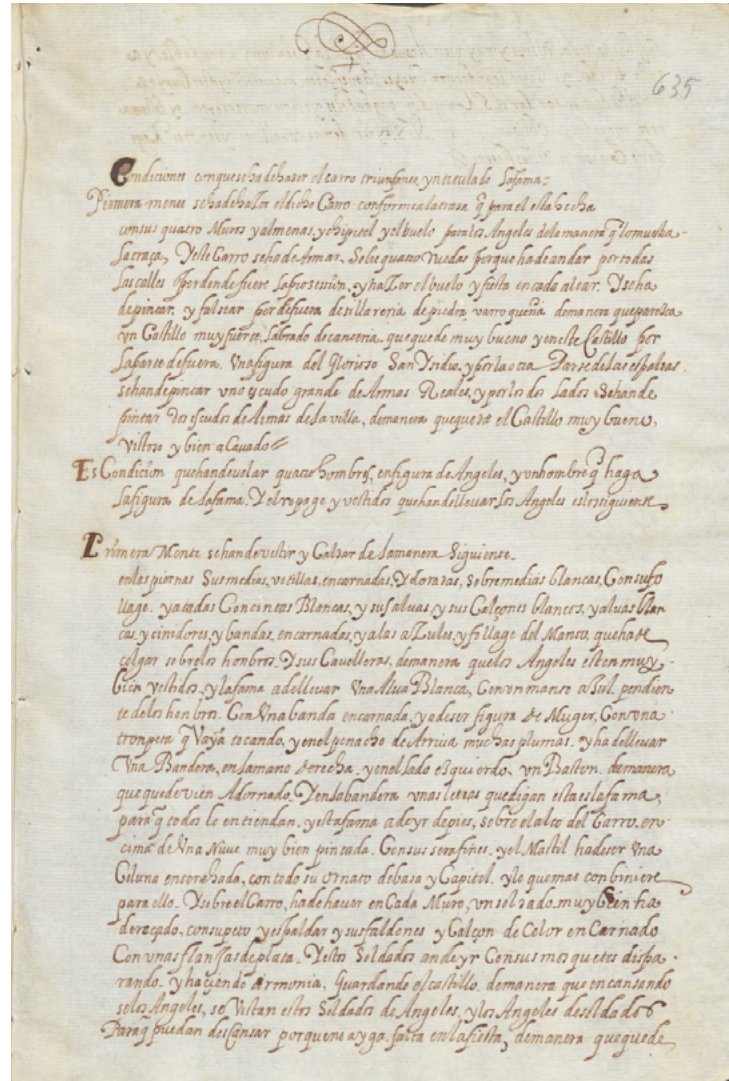 635
Condiciones conquesehadehaser el carro triunfante yntitulado Lafama=
Primera mente sehadehaZer eldicho Carro conformealatrasa q̃ para el esta hecha
consus quatro Muros yalmenas, ychipitel yelbuelo paralos Angeles delamanera q̃ lomuestra
Latraça, Yeste Carro sehade Armar, Sobre quatro Ruedas porque hade andar portodas
Las calles Pordonde fuere Laprosession, yhaZer el buelo yfiesta encada altar. Yseha
depintar, y falsear pordefuera desilleria de piedra, varroqueña demanera queparesca
vn Castillo muyfuerte, Labrado decanteria, quequede muy bueno yeneste Castillo por
Laparte defuera, Vnafigura del Glorioso San Ysidro, yporlaotra Parte delas espaldas
sehandepintar vno escudo grande de Armas Reales, yporlos dos Lados Sehande
pintar dos escudos de Armas de La villa, demanera quequede el Castillo muy bueno,
Vistoso y bien aCavado
Es Condicion quehandevolar quatro hombres, enfigura de Angeles, yvnhombre q̃ haga
Lafigura de Lafama. Y elropage y vestidos quehandellevar Los Angeles eslosiguiente
Primera Mente sehandevestir y Calsar de Lamanera Siguiente
enlas piernas Sus medias, votillas, encarnadas, Y doradas, Sobre medias blancas, Consufo
llage. yatadas Concintas Blancas, y sus aluas, y sus Calçones blancos, yaluas blan
cas, y cinidores, y bandas, encarnadas, yalas aZules, yfollage del Manto, quehade
colgar sobrelos honbros. Y sus Cavelleras, demanera quelos Angeles esten muy
bien vestidos, ylafama adellevar Vna Alua Blanca, Convn manto aSul pendien
te delos honbros. Con Vna banda encarnada, yadeser figura de Muger, Convna
trompeta q̃ Vaya tocando, yenelpenacho de Arriva muchas plumas. yhadellevar
Vna Bandera, enlamano derecha yenellado esquierdo, vn Baston demanera
quequedevien Adornado. Yenlabandera vnas letras quedigan esta es lafama,
para q̃ todos le entiendan. yestafama adeyr depies, sobre elalto del Carro. en
cima de Vna Nuve muy bien pintada. Consus serafines. yel Mastil hadeser Vna
Coluna entorchada, contodo su ornato debasa y Capitel. ylo quemas conbiniere
para ello. Ysobre el Carro, hade haver en Cada Muro, vnsoldado muy bien ha
dereçado, consupeto yespaldar ysusfaldones y Calçon de Color enCarnado
Con vnas flanJas deplata. Yestos Soldados andeyr Consus mosquetes dispa
rando. yhaçiendo Armonia, Guardando elcastillo. demanera que encansando
selos Angeles, se Vistan estos Soldados de Angeles, ylos Angeles desoldados
Paraq̃ puedan desCansar porqueno ayga falta enlafiesta, demanera quequede